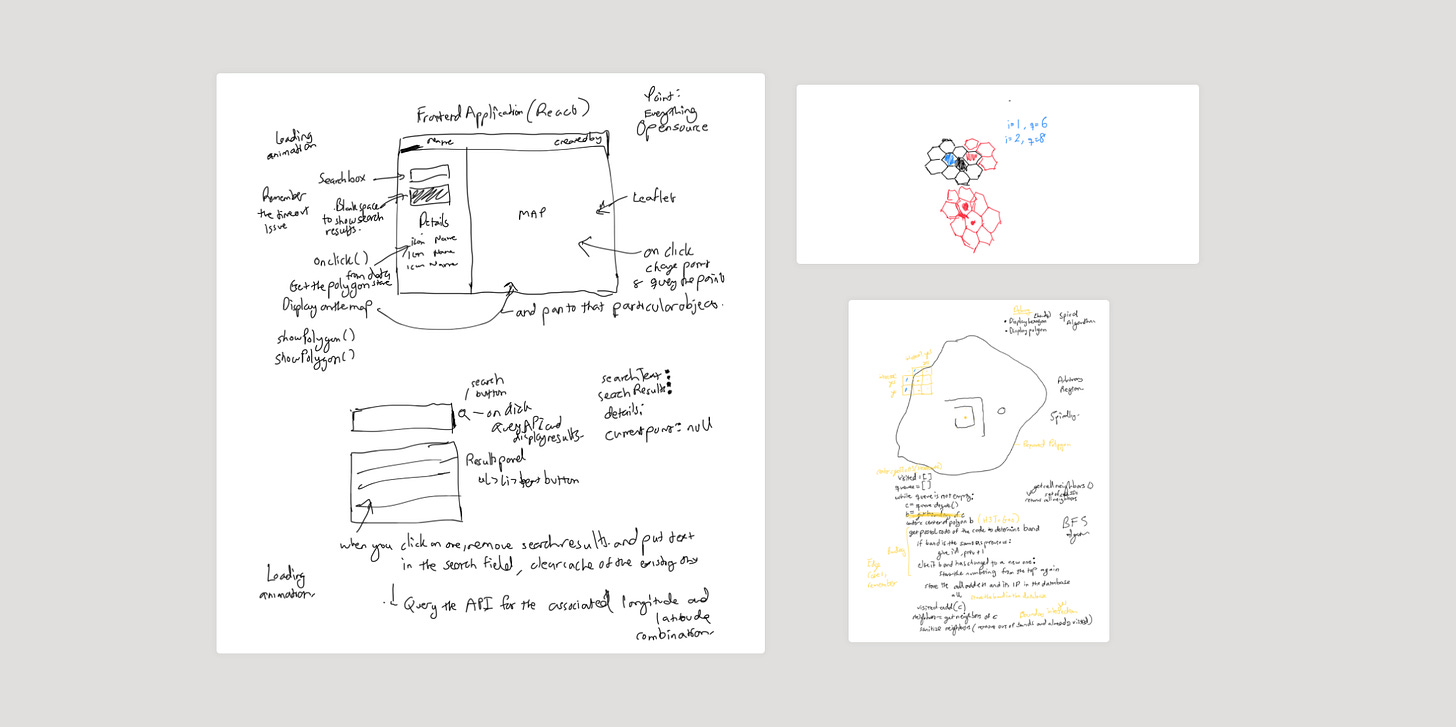 Frontend Application (React)
Point:
Everything
Opensource
Loading
animation
Name
created by
Search box
Remember
the timeout
issue
Blank space
to show search
results.
Details
icon Name
icon Name
icon Name
MAP
Leaflet
onclick()
from data
Get the polygon
Display on the map
on click
change point
& query the point
and pan to that particular objects.
showPolygon()
showPolygon()
search
button
on click
Query API and
display results
searchText:
searchResults:
details:
currentpoint: null
Results panel
ul>li> button
when you click on one, remove search results. and put text
in the search field, clear cache of the existing
Loading
animation
Query the API for the associated longitude and
latitude
combination
i=1, q=6
i=2, q=8
Display hexagon
Display polygon
Spiral
Algorithm
Arbitrary
Region
Spirally
Required Polygon
visited = []
queue = []
while queue is not empty:
c = queue.deque()
get center of polygon b
get postal code of the code to determine band
if band is the same as previous:
give it prev + 1
else if band has changed to a new one:
Start the numbering from the top again
store the address and its IP in the database
visited.add(c)
neighbors = get neighbors of c
sanitize neighbors (remove out of bands and already visited)
getcellneighbors()
return all neighbors
BFS
Edge
Cases
remember